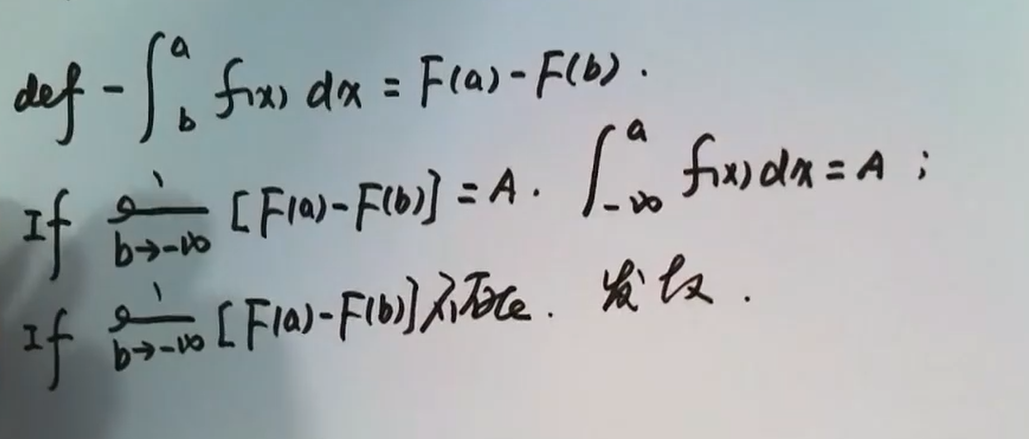 def - ∫_b^a f(x) dx = F(a) - F(b).
If lim_{b→-∞} [F(a) - F(b)] = A. ∫_{-∞}^a f(x) dx = A ;
If lim_{b→-∞} [F(a) - F(b)] 不存在. 发散.